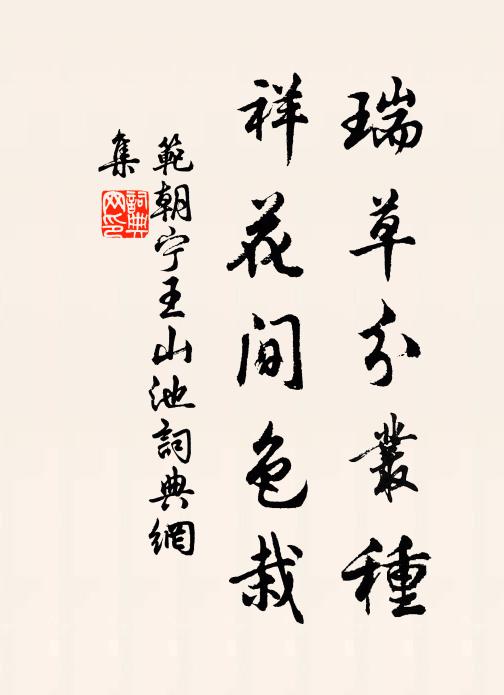 瑞草分叢種
祥花间色栽
範朝宁王山池詞典網
集
詞典网印